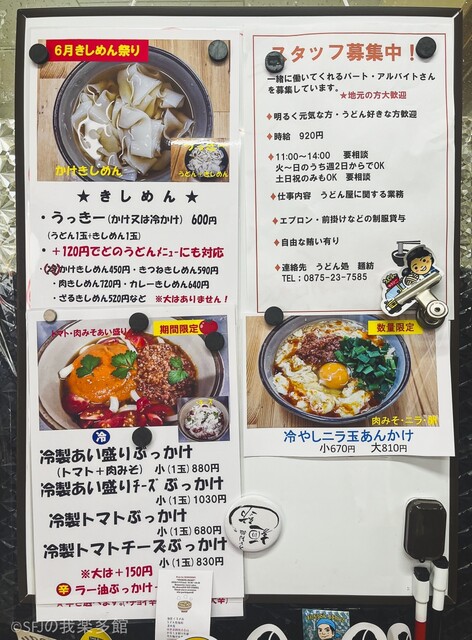 6月きしめん祭り
かけきしめん
うどん・きしめん
★きしめん★
・うっきー(かけ又は冷かけ) 600円
(うどん1玉+きしめん1玉)
・+120円でどのうどんメニューにも対応
かけきしめん450円・きつねきしめん590円
・肉きしめん720円・カレーきしめん640円
・ざるきしめん520円など ※大はありません!
トマト・肉みそあい盛り
期間限定
冷
冷製あい盛りぶっかけ
(トマト+肉みそ) 小(1玉)880円
冷製あい盛りチーズぶっかけ
小(1玉)1030円
冷製トマトぶっかけ
小(1玉)680円
冷製トマトチーズぶっかけ
小(1玉)830円
※大は+150円
辛 ラー油ぶっかけ
スタッフ募集中!
一緒に働いてくれるパート・アルバイトさん
を募集しています。
★地元の方大歓迎
♦明るく元気な方・うどん好きな方歓迎
♦時給 920円
♦11:00~14:00 要相談
火~日のうち週2日からでOK
土日祝のみもOK 要相談
♦仕事内容 うどん屋に関する業務
♦エプロン・前掛けなどの制服貸与
♦自由な賄い有り
♦連絡先 うどん処 麺紡
TEL:0875-23-7585
数量限定
肉みそ・ニラ・
冷やしニラ玉あんかけ
小670円 大810円
©SFJの我楽多館